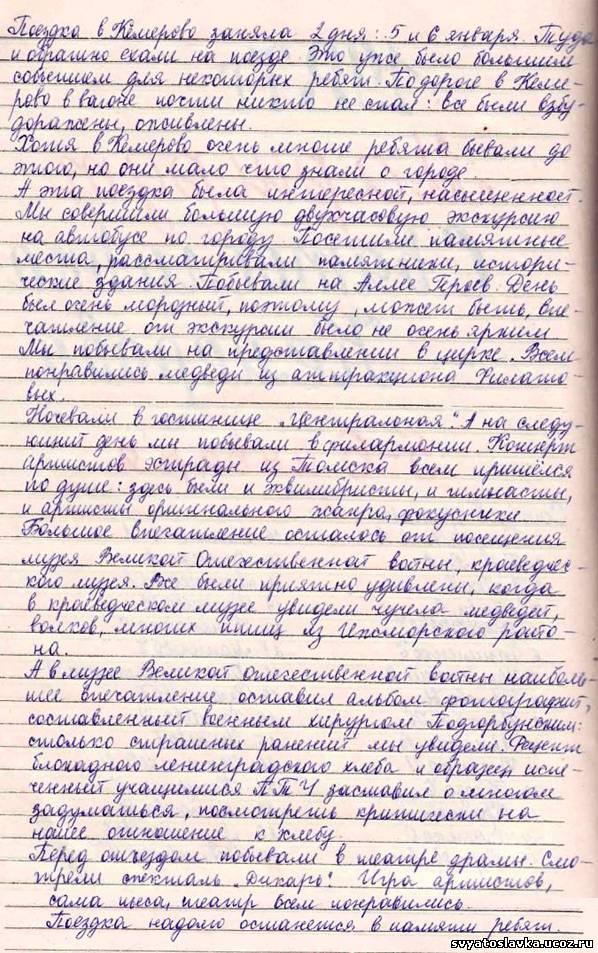 Поездка в Кемерово заняла 2 дня: 5 и 6 января. Туда
и обратно ехали на поезде. Это уже было большим
событием для некоторых ребят. По дороге в Кеме-
рово в вагоне почти никто не спал: все были взбу-
доражены, оживлены.
Хотя в Кемерово очень многие ребята бывали до
этого, но они мало что знали о городе.
А эта поездка была интересной, насыщенной.
Мы совершили большую двухчасовую экскурсию
на автобусе по городу. Посетили памятные
места, рассматривали памятники, истори-
ческие здания. Побывали на Аллее Героев. День
был очень морозный, поэтому, может быть, впе-
чатление от экскурсии было не очень ярким.
Мы побывали на представлении в цирке. Всем
понравились медведи из аттракциона Филато-
вых.
Ночевали в гостинице „Центральная“. А на следу-
ющий день мы побывали в филармонии. Концерт
артистов эстрады из Томска всем пришёлся
по душе: здесь были и эквилибристы, и гимнасты,
и артисты оригинального жанра, фокусники
Большое впечатление осталось от посещения
музея Великой Отечественной войны, краеведчес-
кого музея. Все были приятно удивлены, когда
в краеведческом музее увидели чучела медведей,
волков, многих птиц из Ижморского райо-
на.
А в музее Великой Отечественной войны наиболь-
шее впечатление оставил альбом фотографий,
составленный военным хирургом Подгорбунским:
столько страшных ранений мы увидели. Рецепт
блокадного ленинградского хлеба и образец испе-
ченный учащимися ПТУ заставил о многом
задуматься, посмотреть критически на
наше отношение к хлебу.
Перед отъездом побывали в театре драмы. Смо-
трели спектакль „Дикарь“. Игра артистов,
сама пьеса, театр всем понравились.
Поездка надолго останется в памяти ребят.
svyatoslavka.ucoz.ru